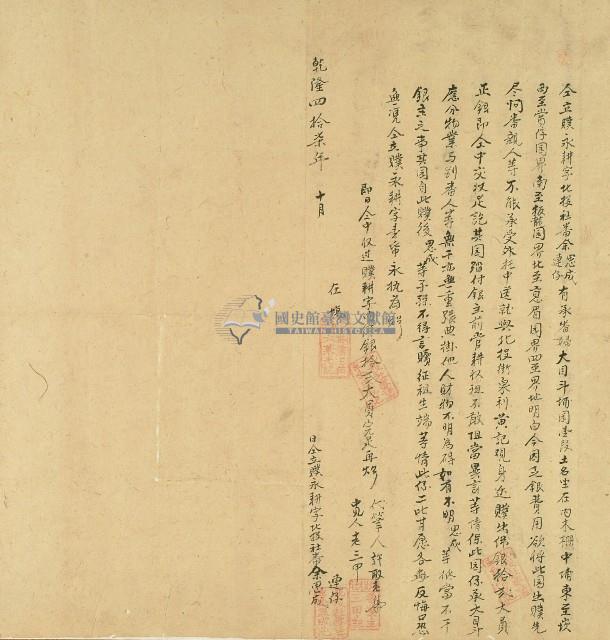 仝立贌永耕字北投社番余思成連仔有承番婦大目斗埔園壹段土名坐在內木柵中埔東至崁
西至當仔園界南至界北至意眉園界四至界址明白今因乏銀費用欲將此園出贌先
尽問番親人等不能承受外托中送就與北投街泉利黃記現身近贌出佛銀拾大員
正銀即仝中交收足訖其園踏付銀主前去管耕收租不敢阻當異言等情保此園係承大目斗
應分物業与別番人等無干亦無重張典掛他人財物不明為碍如有不明思成等抵當不干
銀主之事其園自此贌後思成等子孫不得言贖征租生端等情此係二比甘愿各無反悔口恐
無憑仝立贌永耕字壹紙永執為炤
即日仝中收過贌耕字佛銀拾大員完足再炤
代筆人許
中見人老三甲
在塲
乾隆四拾柒年 十月 日仝立贌永耕字北投社番余思成連仔
國史館臺灣文獻館
TAIWAN HISTORICA